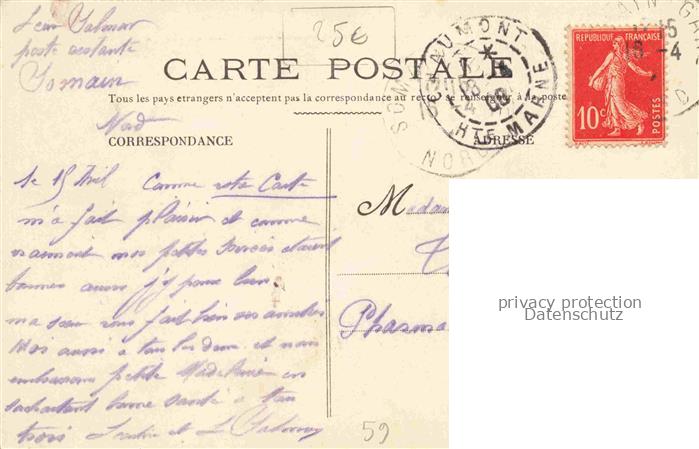 Léon
poste restante
Somain
Nord
25€
CARTE POSTALE
Tous les pays étrangers n'acceptent pas la correspondance au recto se renseigner à la poste
CORRESPONDANCE
ADRESSE
CHAUMONT
HTE MARNE
SOM
NORD
RÉPUBLIQUE FRANÇAISE
10c
POSTES
le 15 Avril Comme votre Carte
m'a fait plaisir et comme
vraiment mes petites
bonnes aussi j'y pense bien
ma sœur vous fait bien ses amitiés
Moi aussi à tous les deux et nous
embrassons petite Madeleine en
souhaitant bonne santé à tous
trois
Madam
Pharma
privacy protection
Datenschutz
59